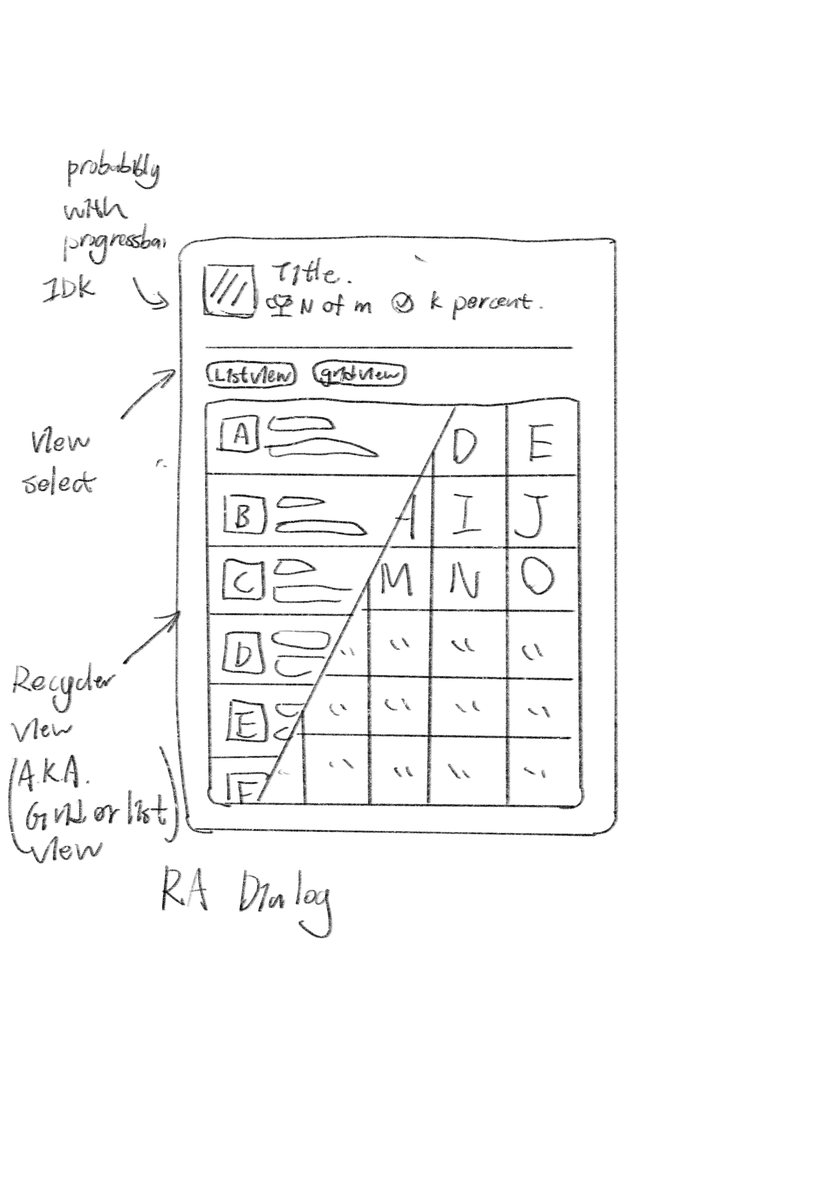 probabbly
with
progressbar
IDK
Title.
N of m k percent.
Listview gridview
View
select
A D E
B A I J
C M N O
D
E
F
Recycler
view
(A.K.A.
Grid or list
view)
RA Dialog